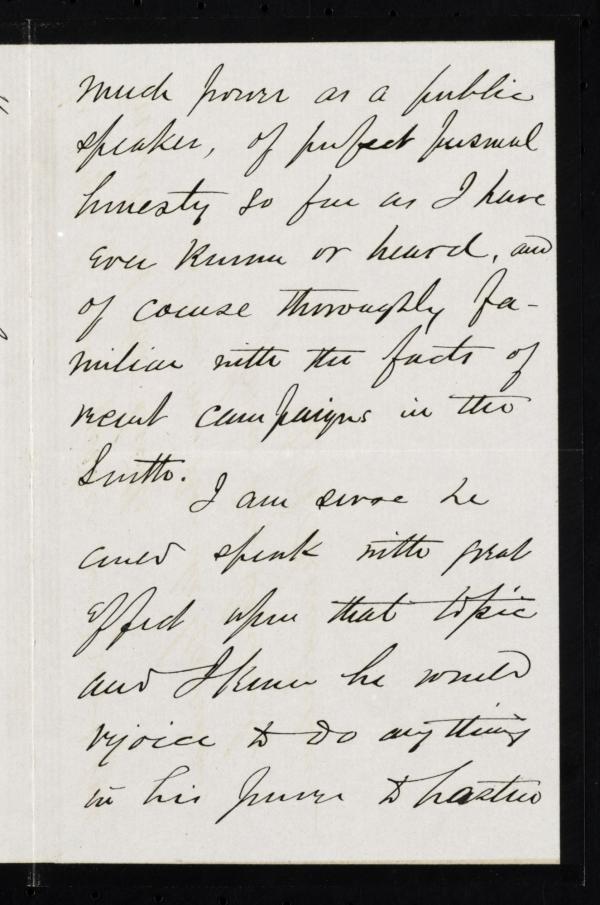 much power as a public
speaker, of perfect personal
honesty so far as I have
ever known or heard, and
of course thoroughly fa-
miliar with the facts of
recent campaigns in the
South.
I am sure he
could speak with great
effect upon that topic
and I know he would
rejoice to do anything
in his power to hasten